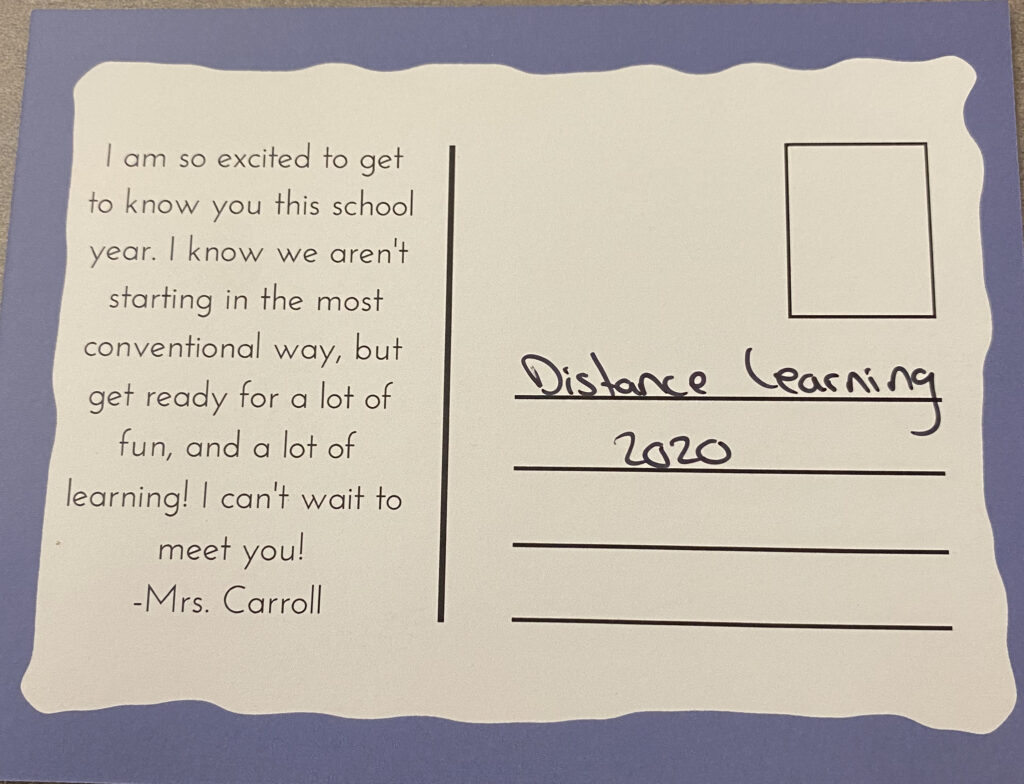 I am so excited to get
to know you this school
year. I know we aren't
starting in the most
conventional way, but
get ready for a lot of
fun, and a lot of
learning! I can't wait to
meet you!
-Mrs. Carroll
Distance Learning
2020